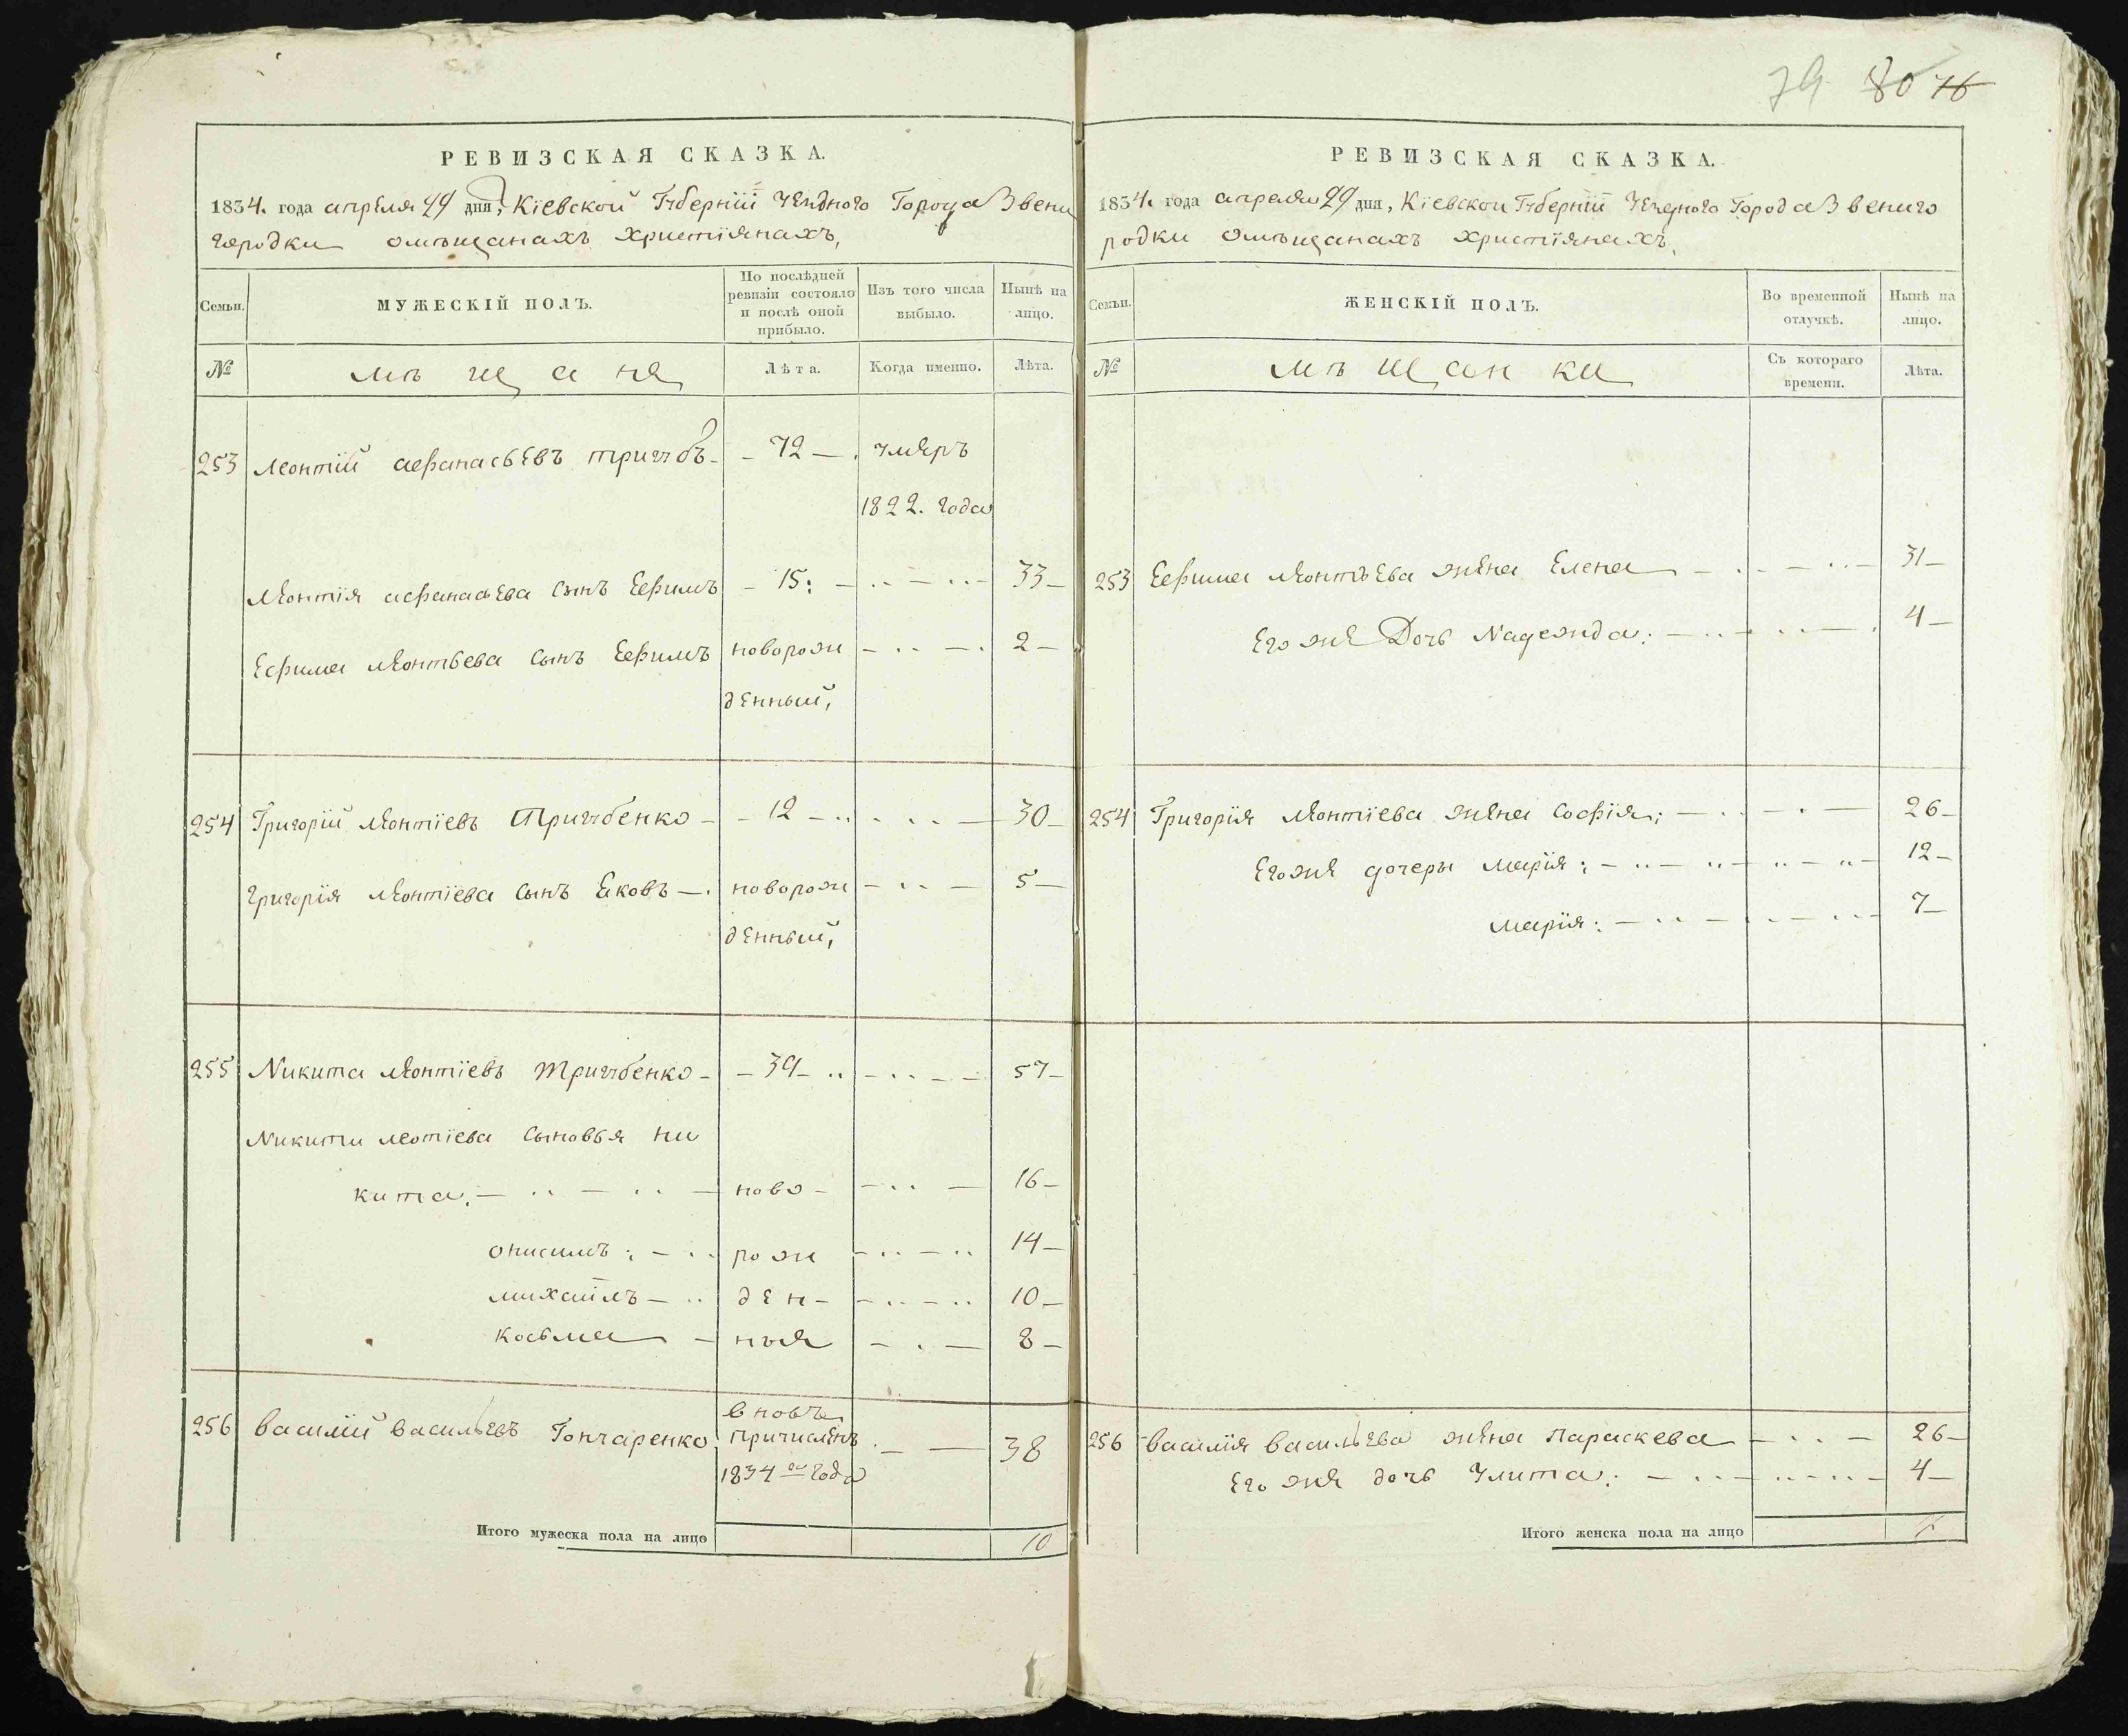 79 80 76
РЕВИЗСКАЯ СКАЗКА.
1834. года апреля 29 дня, Кіевской Губерніи Уезднаго Города Звени
городки омѣщанахъ христіянахъ,
Семьи.
МУЖЕСКІЙ ПОЛЪ.
По послѣдней ревизіи состояло и послѣ оной прибыло.
Изъ того числа выбыло.
Нынѣ на лицо.
№
мѣщане
Лѣта.
Когда именно.
Лѣта.
253 Леонтій афанасьевъ тригубъ - 72 - умеръ
1822. года
Леонтія афанасьева сынъ Ефимъ - 15: - 33 -
Ефима леонтьева сынъ Ефимъ новорож - 2 -
денный,
254 Григорій леонтіевъ Тригубенко - 12 - 30 -
григорія леонтіева сынъ Яковъ - новорож - 5 -
денный,
255 Никита леонтіевъ Тригубенко - 39 - 57 -
Никити леотіева сыновья ни
кита, - ново - 16 -
онисимъ: - рож 14 -
михайлъ - ден - 10 -
косьма - ныя - 8 -
256 василій васильевъ Гончаренко вновь
причисленъ - 38
1834 го года
Итого мужеска пола на лицо 10
РЕВИЗСКАЯ СКАЗКА.
1834. года апреля 29 дня, Кіевской Губерніи Уезднаго Города Звениго
родки омѣщанахъ христіянахъ,
Семьи.
ЖЕНСКІЙ ПОЛЪ.
Во временной отлучкѣ.
Нынѣ на лицо.
№
мѣщанки
Съ котораго времени.
Лѣта.
253 Ефима леонтьева жена Елена - 31 -
Его же Дочь Надежда: - 4 -
254 Григорія леонтіева жена софія; - 26 -
Его же дочеры марія: - 12 -
марія: - 7 -
256 василія васильева жена параскева - 26 -
Его же дочь Улита: - 4 -
Итого женска пола на лицо